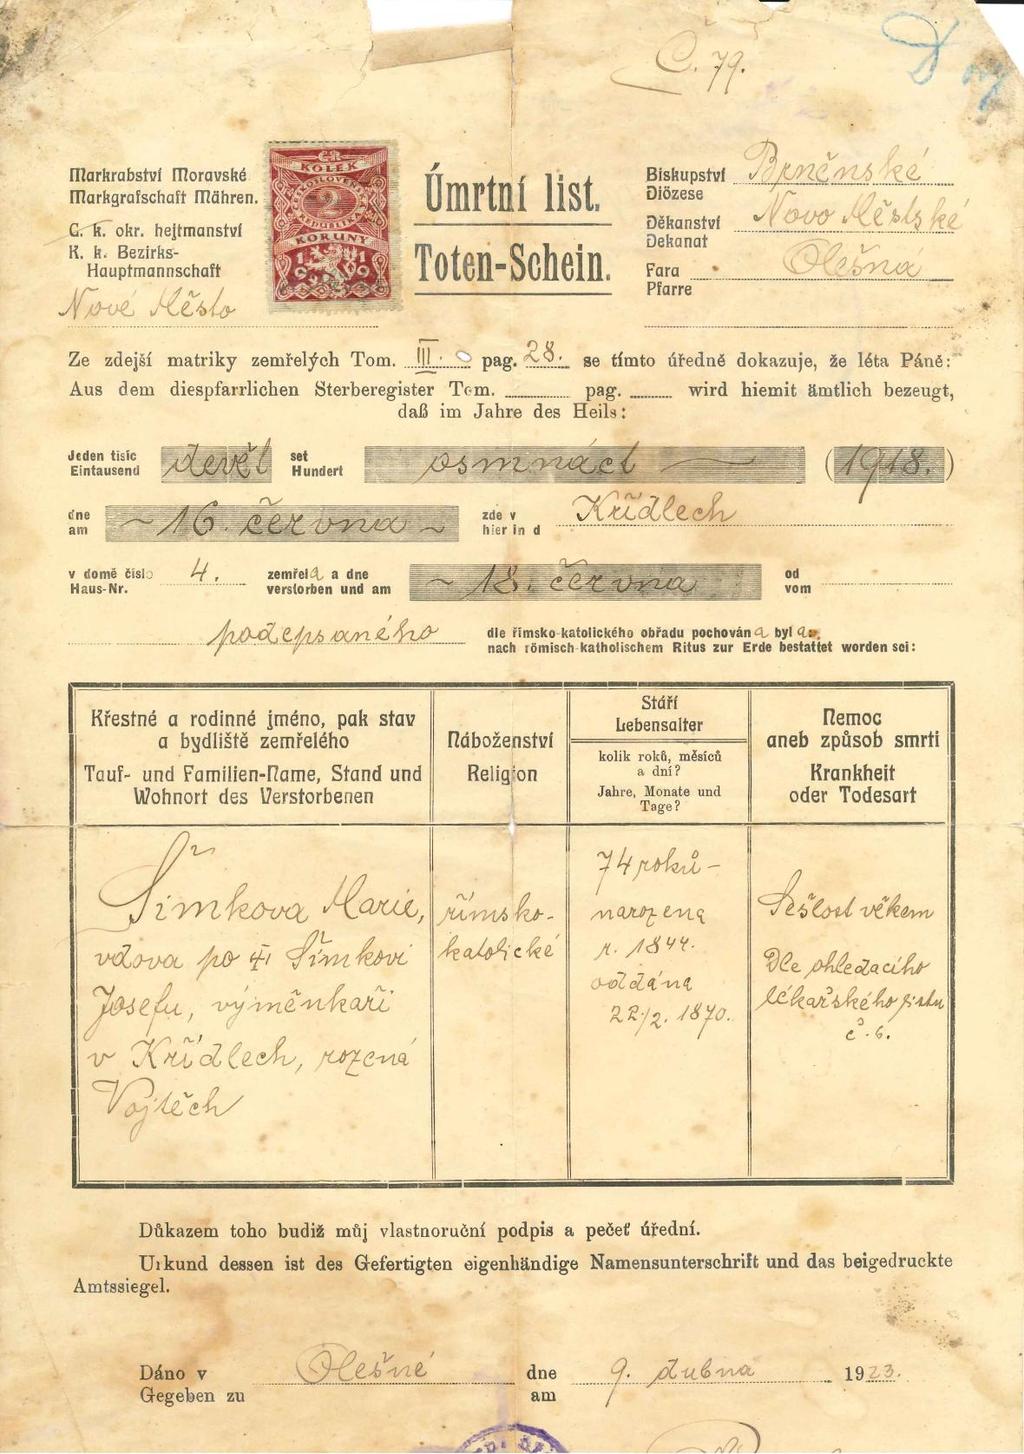 Č. 79.
Markrabství Moravské
Markgrafschaft Mähren.
C. k. okr. hejtmanství
K. k. Bezirks-
Hauptmannschaft
Nové Město
KOLEK
2
KORUNY
1919
Úmrtní list.
Toten-Schein.
Biskupství Brněnské
Diözese
Děkanství Novo Městské
Dekanat
Fara Olešna
Pfarre
Ze zdejší matriky zemřelých Tom. III. pag. 28. se tímto úředně dokazuje, že léta Páně:
Aus dem diespfarrlichen Sterberegister Tom. pag. wird hiemit ämtlich bezeugt,
daß im Jahre des Heils:
Jeden tisíc devět set osmnáct (1918.)
Eintausend Hundert
dne 16. června zde v Křídlech
am hier in d
v domě číslo 4. zemřela a dne 18. června od
Haus-Nr. verstorben und am vom
podepsaného dle římsko-katolického obřadu pochována byla
nach römisch-katholischem Ritus zur Erde bestattet worden sei:
Křestné a rodinné jméno, pak stav
a bydliště zemřelého
Tauf- und Familien-Name, Stand und
Wohnort des Verstorbenen
Náboženství
Religion
Stáří
Lebensalter
kolik roků, měsíců
a dní?
Jahre, Monate und
Tage?
Nemoc
aneb způsob smrti
Krankheit
oder Todesart
Šimkova Marie,
vdova po Šimkovi
Josefu, výměnkaři
v Křídlech, rozená
Vojtěch
římsko-
katolické
74 roků -
narozena
r. 1844.
oddána
22./2. 1870.
Sešlost věkem
Dle ohledacího
lékařského listu
č. 6.
Důkazem toho budiž můj vlastnoruční podpis a pečeť úřední.
Urkund dessen ist des Gefertigten eigenhändige Namensunterschrift und das beigedruckte
Amtssiegel.
Dáno v Olešné dne 9. dubna 1923.
Gegeben zu am